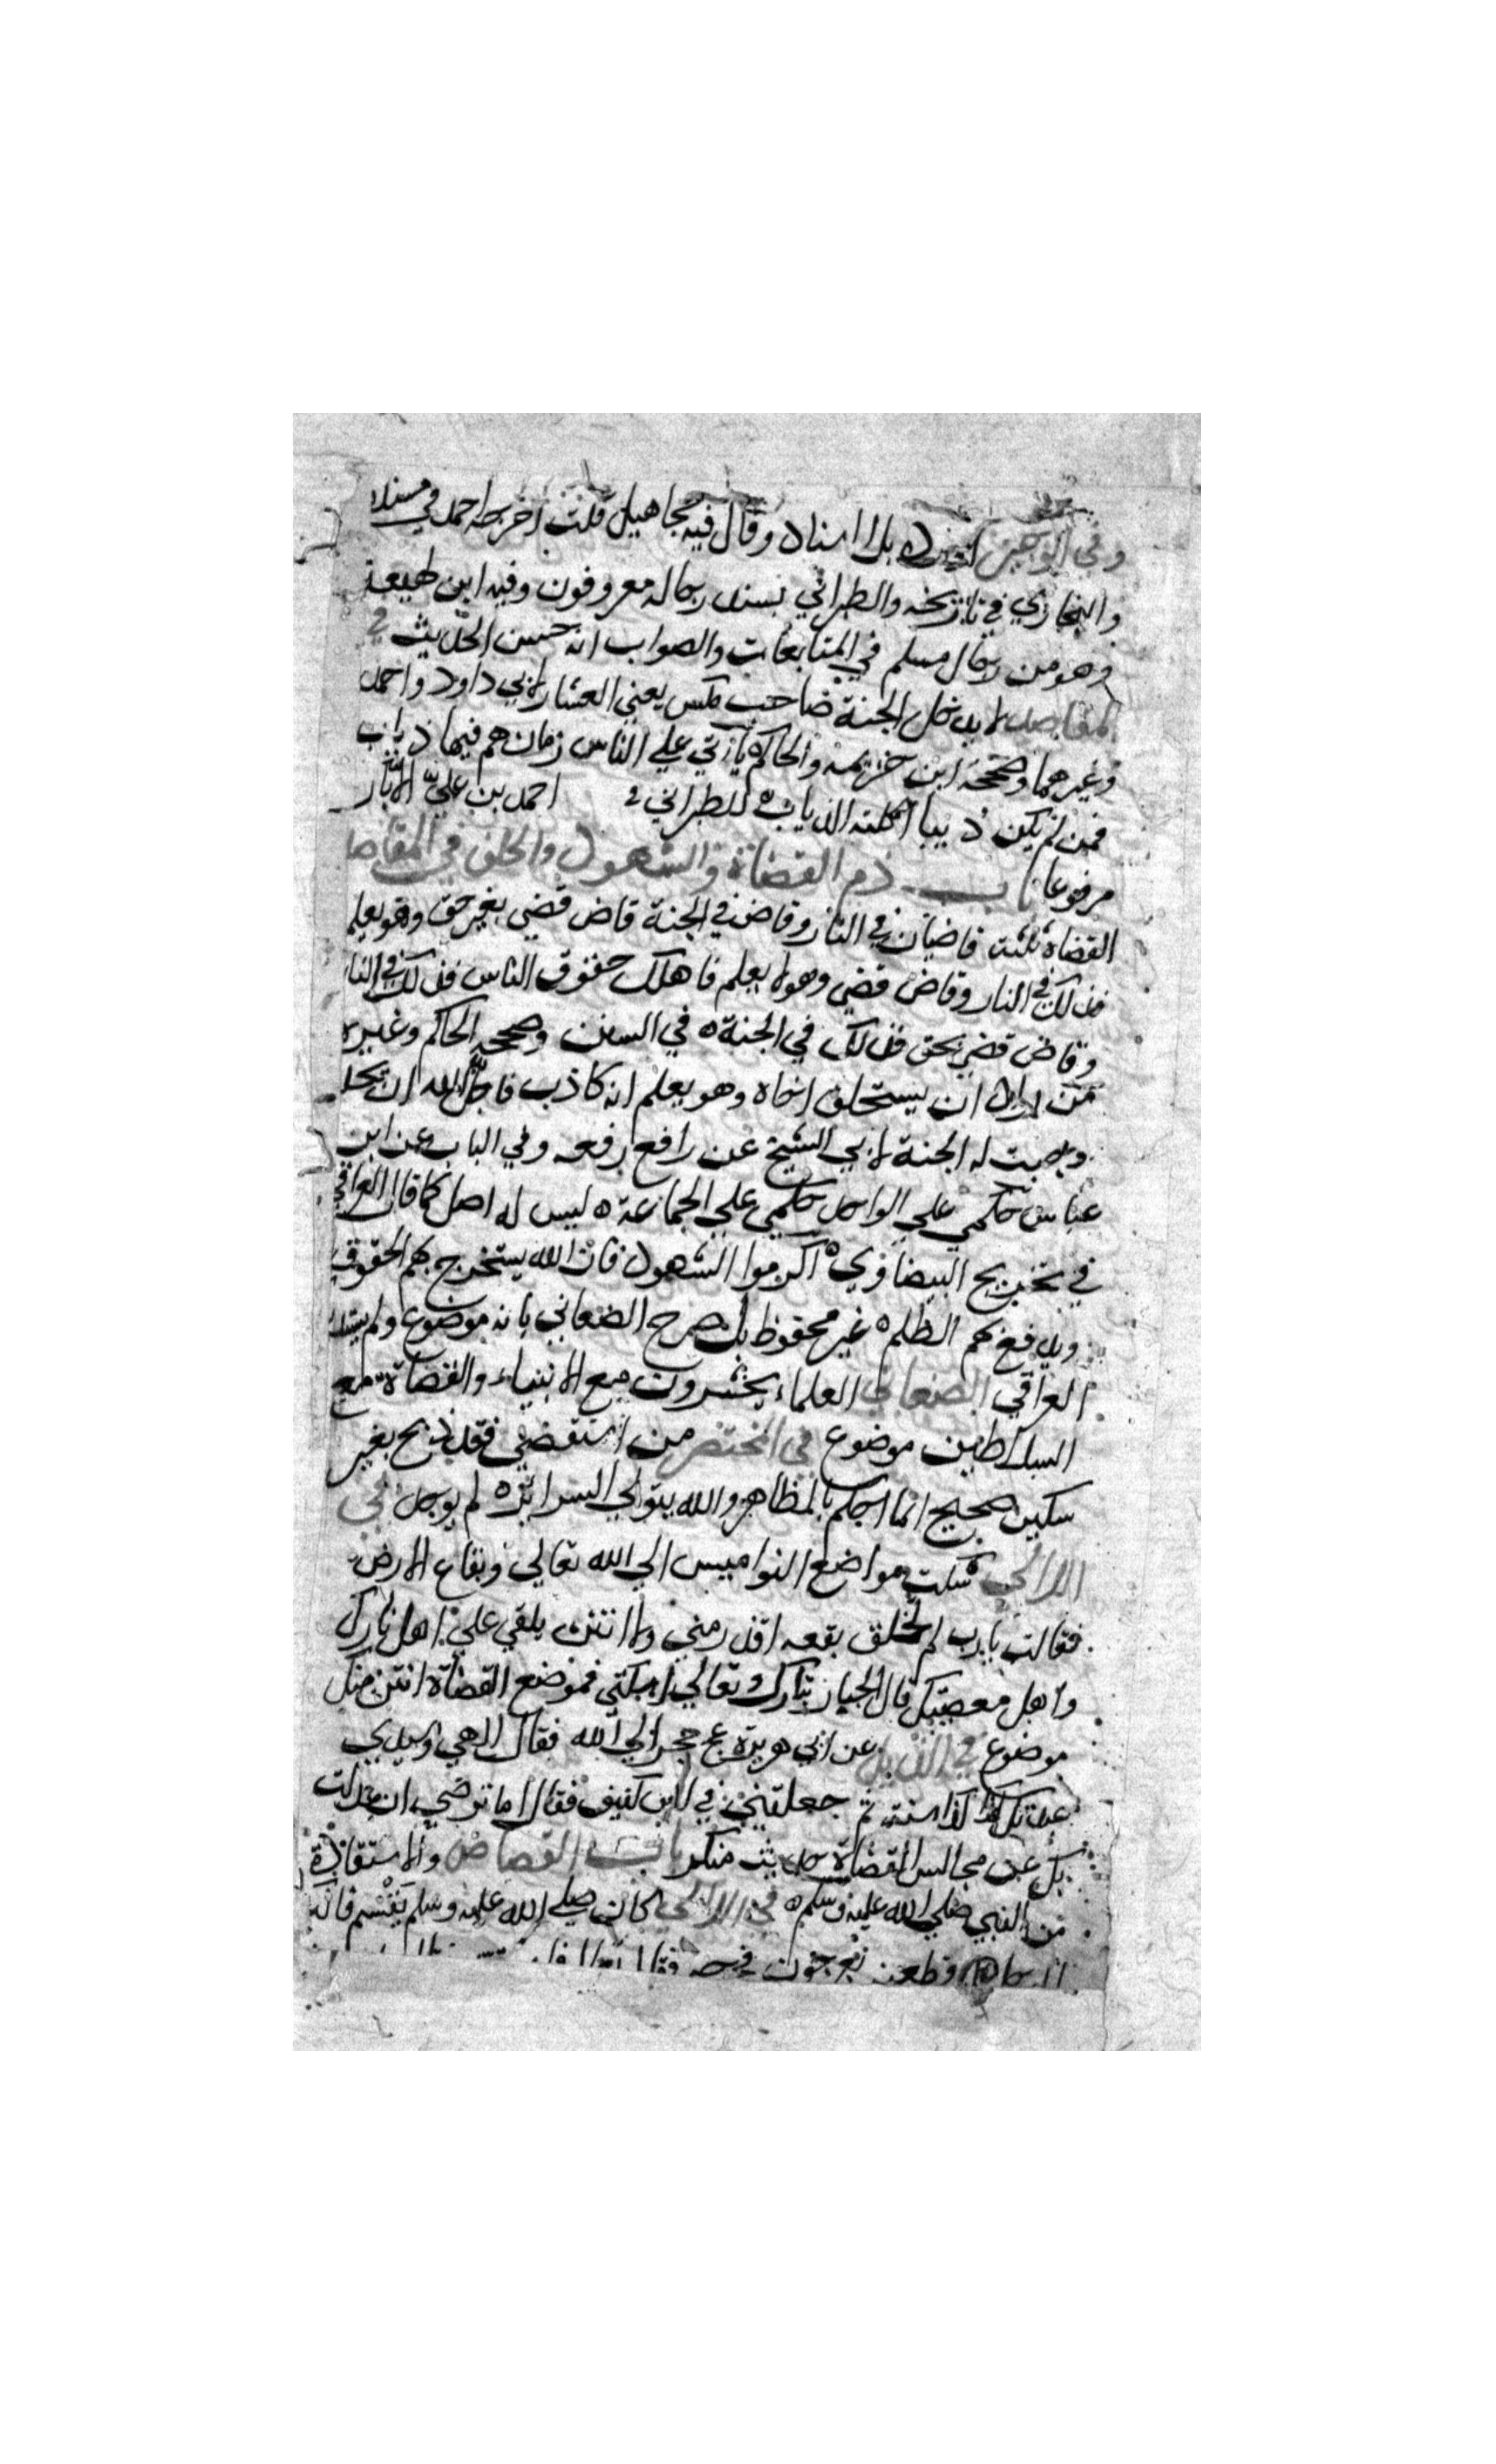 وفي الوجيز اورده بلا اسناد وقال فيه مجاهيل قلت اخرجه احمد في مسنده
والبخاري في تاريخه والطبراني بسند رجاله معروفون وفيه ابن لهيعة
وهو من رجال مسلم في المتابعات والصواب انه حسن الحديث في
المقاصد لا يدخل الجنة صاحب مكس يعني العشار لابي داود واحمد
وغيرهما وصححه ابن خزيمة والحاكم ياتي علي الناس زمان هم فيها ذياب
فمن لم يكن ذيبا اكلته الذياب للطبراني احمد بن علي الابار
مرفوعا باب ذم القضاة والشهود والحلف في المقاصد
القضاة ثلثة قاضيان في النار وقاض في الجنة قاض قضي بغير حق وهو يعلم
فذلك في النار وقاض قضي وهو لا يعلم فاهلك حقوق الناس فذلك في النار
وقاض قضي بحق فذلك في الجنة في السنن وصححه الحاكم وغيره
من اراد ان يستحلف اخاه وهو يعلم انه كاذب فاجل الله ان يحلف
وجبت له الجنة لابي الشيخ عن رافع رفعه وفي الباب عن ابن
عباس حكمي علي الواحد حكمي علي الجماعة ليس له اصل كما قال العراقي
في تخريج البيضاوي اكرموا الشهود فان الله يستخرج بهم الحقوق
ويدفع بهم الظلم غير محفوظ بل صرح الصغاني بانه موضوع ولم
العراقي الصغاني العلماء يحشرون مع الانبياء والقضاة مع
السلاطين موضوع في المختصر من استقضي فقد ذبح بغير
سكين صحيح انما احكم بالظاهر والله يتولي السرائر لم يوجد في
اللالي شكت مواضع النواويس الي الله تعالي وبقاع الارض
فقالت يارب لم تخلق بقعة اقذر مني ولا انتن يلقي علي اهل نارك
واهل معصيتك قال الجبار تبارك وتعالي اسكتي فموضع القضاة انتن منك
موضوع في الذيل عن ابي هريرة عج حجر الي الله فقال الهي وسيدي
عبدتك كذا كذا سنة ثم جعلتني في اس كنيف فقال اما ترضي ان عدلت
بك عن مجالس القضاة حديث منكر باب القصاص والاستقادة
من النبي صلي الله عليه وسلم في اللالي كان صلي الله عليه وسلم يقسم فاتاه